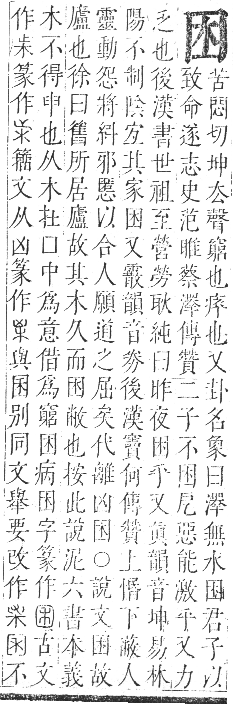 困苦悶切坤去聲窮也瘁也又卦名象曰澤無水困君子以
致命遂志史范睢蔡澤傳贊二子不困厄惡能激乎又力
乏也後漢書世祖至營勞耿純曰昨夜困乎又真韻音坤易林
陽不制陰宜其家困又霰韻音劵後漢竇何傳贊上惛下蔽人
靈動怨將糾邪慝以合人願道之屈矣代離凶困○說文困故
廬也徐曰舊所居廬故其木久而困敝也按此說泥六書本義
木不得申也从木在囗中爲意借爲窮困病困字篆作困古文
作朱篆作 籀文从凶篆作 與困別同文舉要改作 困不